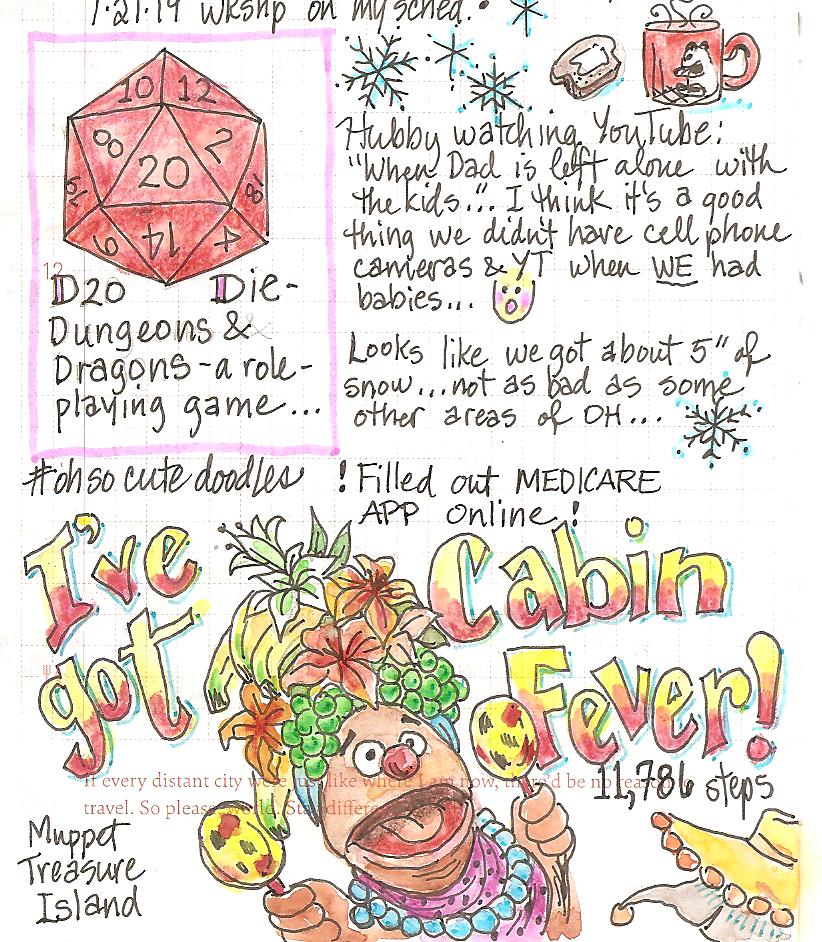 1.21.19 wkshp on my sched.
10 12
8 2
20
14 4
12
D20 Die-
Dungeons &
Dragons - a role-
playing game...
Hubby watching YouTube:
"When Dad is left alone with
the kids." I think it's a good
thing we didn't have cell phone
cameras & YT when WE had
babies...
Looks like we got about 5" of
snow...not as bad as some
other areas of OH...
#ohsocutedoodles
! Filled out MEDICARE
APP online!
I've got Cabin Fever!
If every distant city were just like where I am now, there'd be no reason to
travel. So please, world. Stay
11,786 steps
Muppet
Treasure
Island